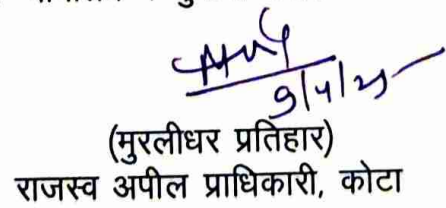 9/4/25
(मुरलीधर प्रतिहार)
राजस्व अपील प्राधिकारी, कोटा